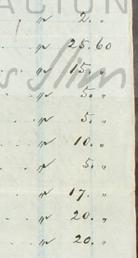 ACION
" 2. "
" 25.60
" 15. "
Slim
" 5. "
" 5. "
" 10. "
" 5. "
" 17. "
" 20. "
" 20. "